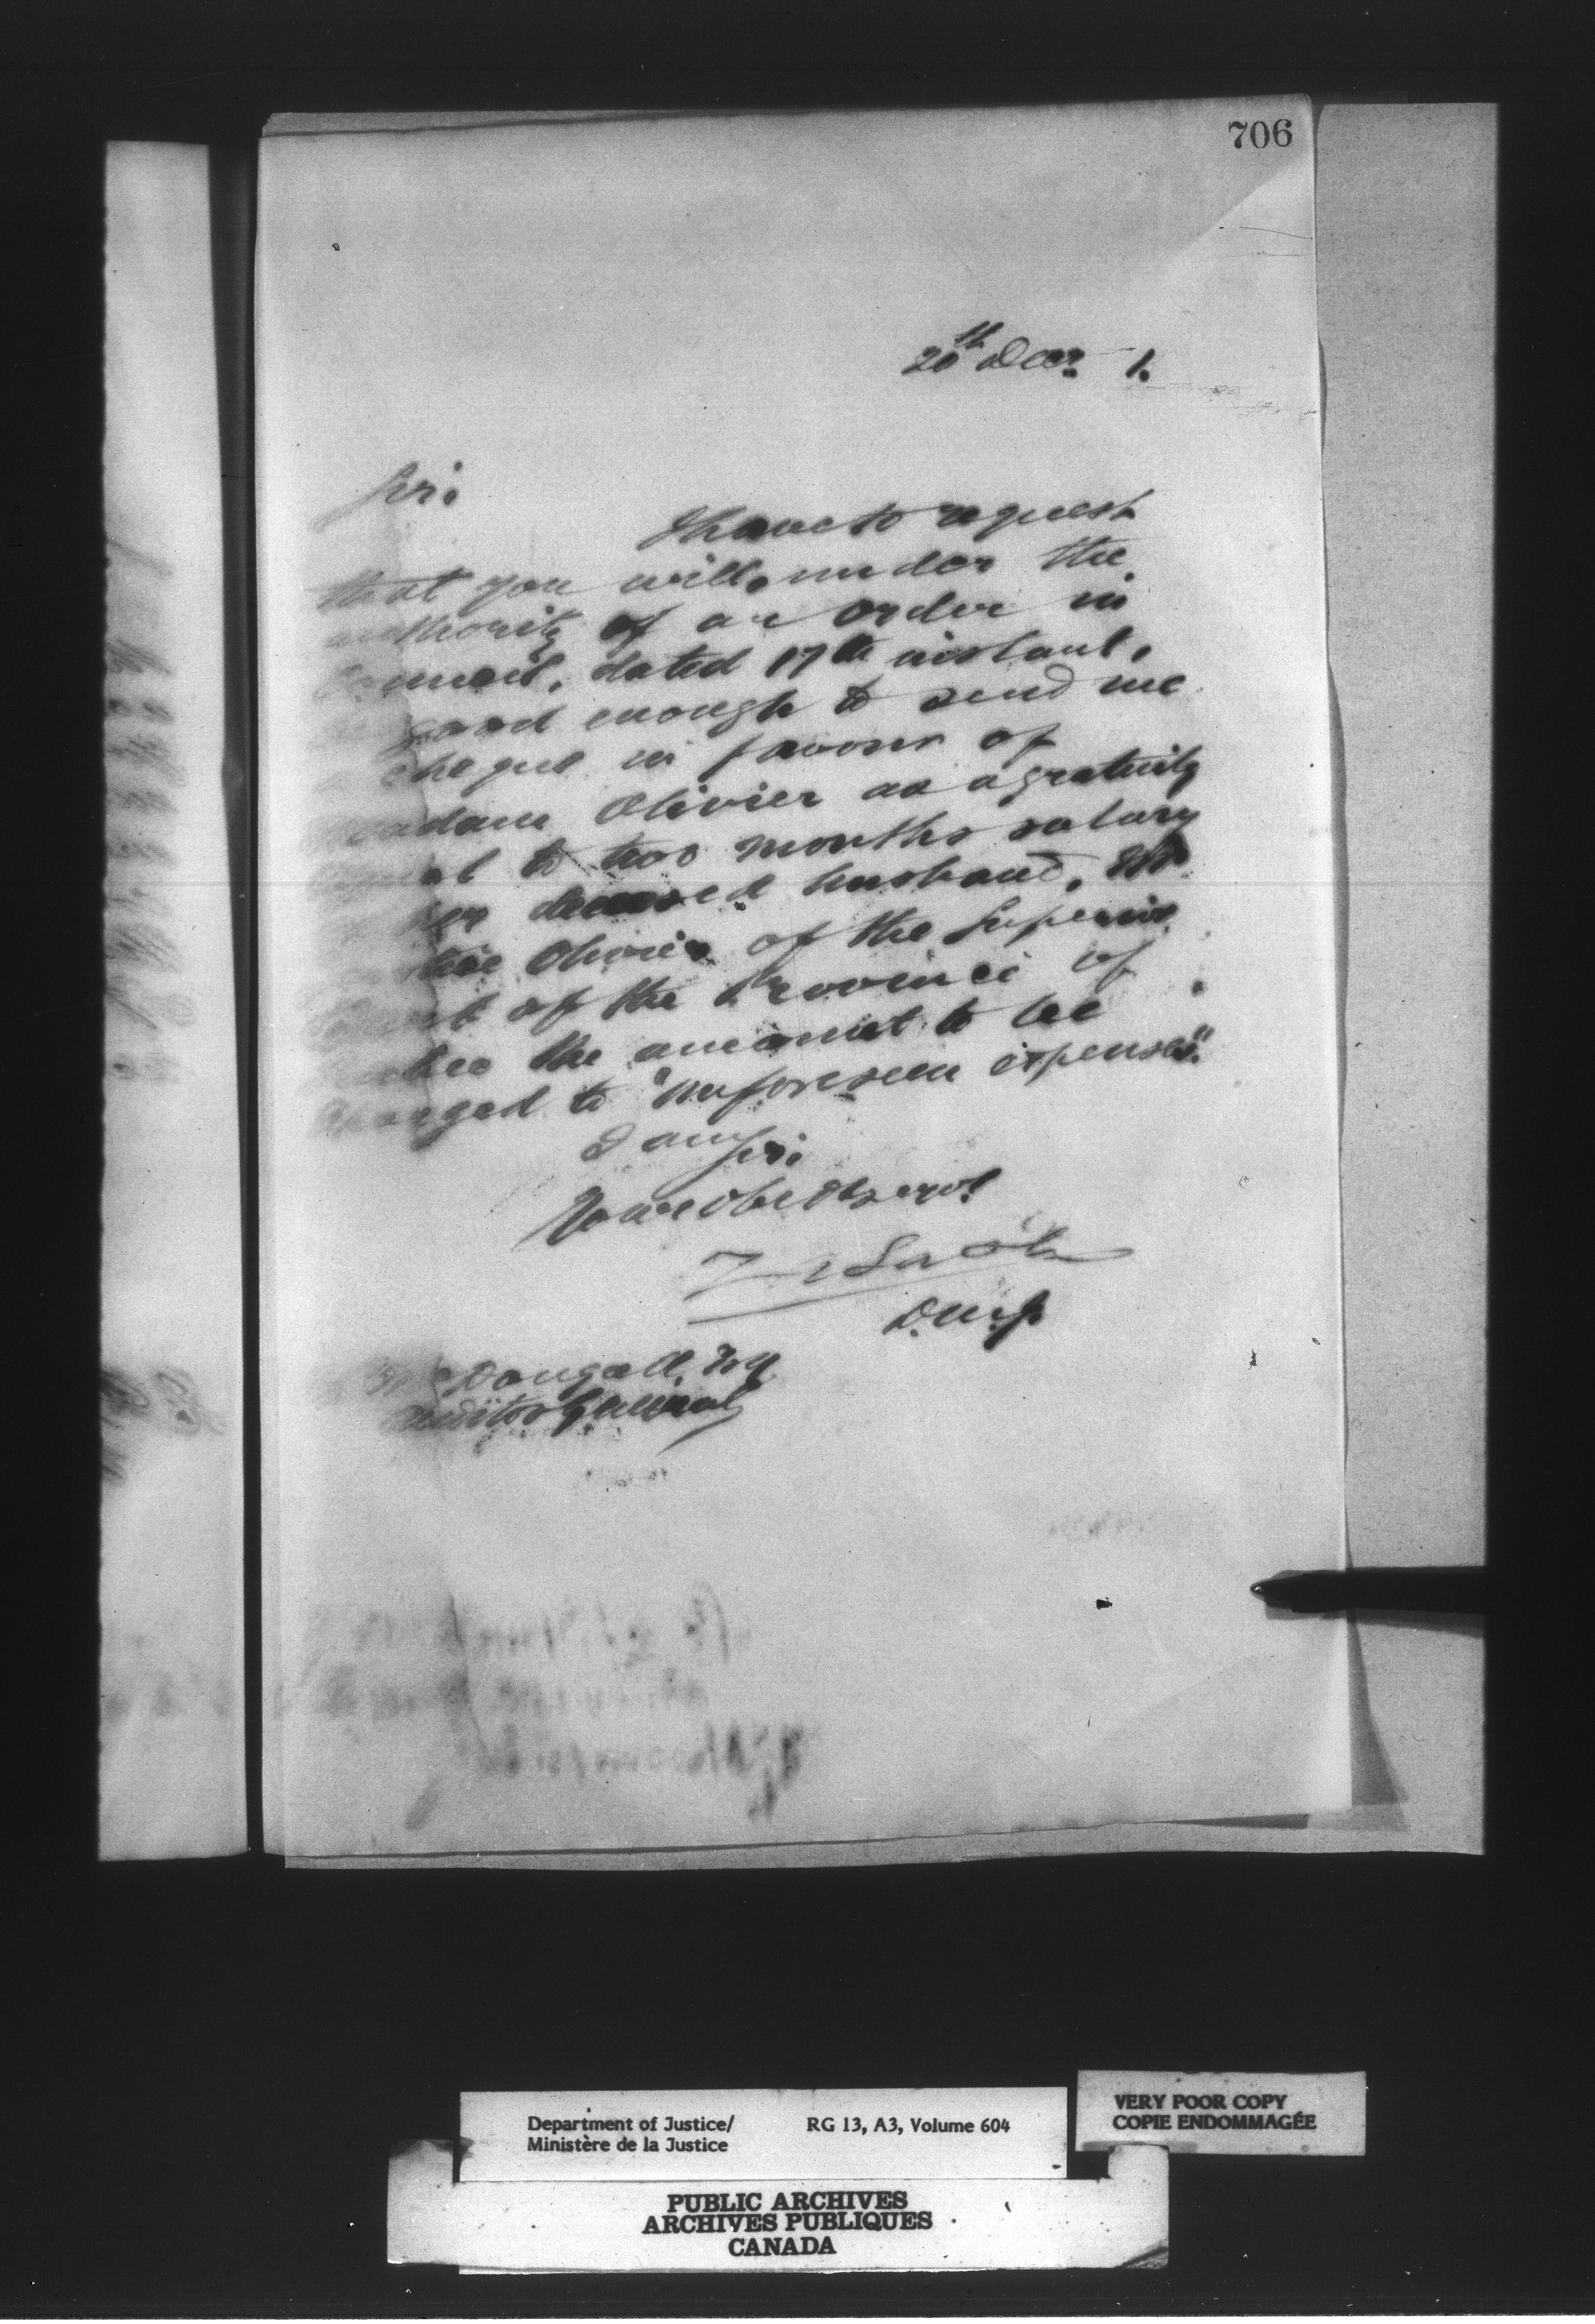 706
20th Decr. 1.
Sir.
I have to request
that you will, under the
authority of an order in
Council, dated 17th instant,
good enough to send me
cheque in favour of
Madam Olivier as a gratuity
to two months salary
her deceased husband, Mr
Olivier of the Superior
of the Province of
the amount to be
charged to "unforeseen expenses".
I am Sir.
Your obedt servt
Z A Lash
D.M.J.
McDougall, Esq
Auditor General
Department of Justice/ RG 13, A3, Volume 604
Ministère de la Justice
VERY POOR COPY
COPIE ENDOMMAGÉE
PUBLIC ARCHIVES
ARCHIVES PUBLIQUES
CANADA